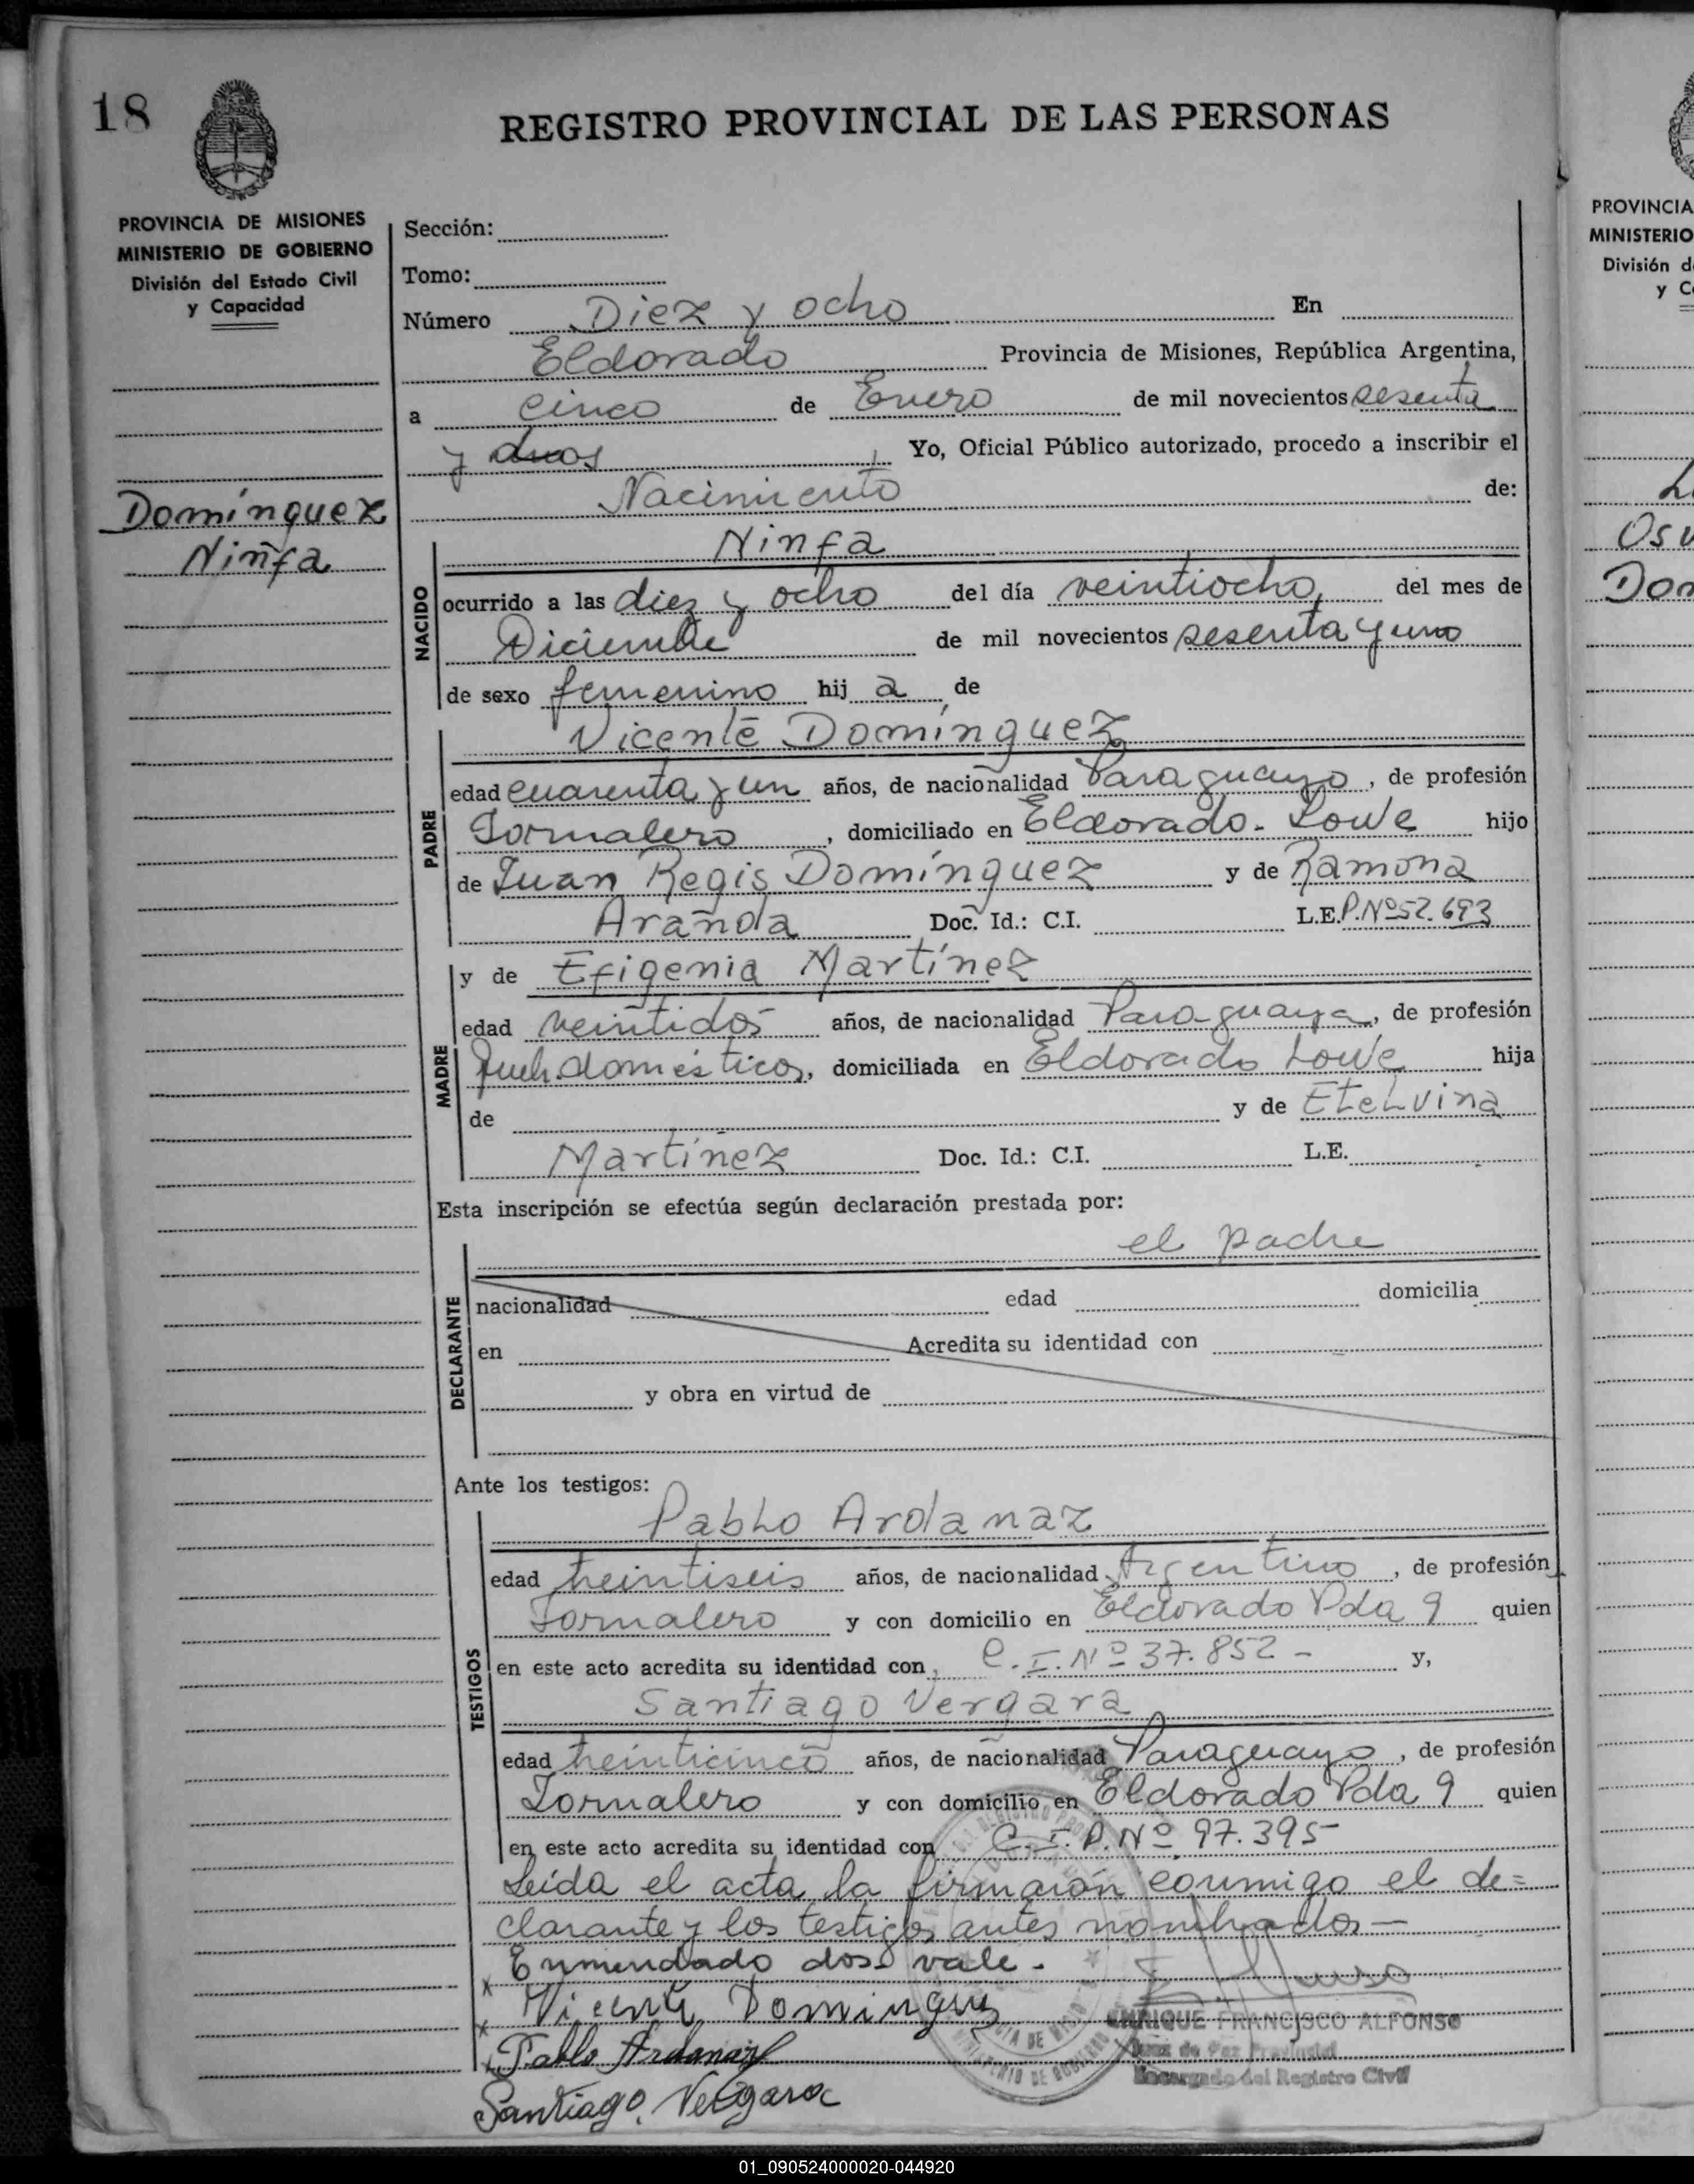 18
REGISTRO PROVINCIAL DE LAS PERSONAS
PROVINCIA DE MISIONES
MINISTERIO DE GOBIERNO
División del Estado Civil
y Capacidad
Domínguez
Ninfa
Sección:
Tomo:
Número Diez y ocho En
Eldorado Provincia de Misiones, República Argentina,
a cinco de Enero de mil novecientos sesenta
y dos Yo, Oficial Público autorizado, procedo a inscribir el
Nacimiento de:
NACIDO
Ninfa
ocurrido a las diez y ocho del día veintiocho del mes de
Diciembre de mil novecientos sesenta y uno
de sexo femenino hij a de
PADRE
Vicente Domínguez
edad cuarenta y un años, de nacionalidad Paraguayo, de profesión
Jornalero, domiciliado en Eldorado. Lowe hijo
de Juan Regis Domínguez y de Ramona
Aranda Doc. Id.: C.I. L.E. P.Nº 52.693
MADRE
y de Efigenia Martínez
edad veintidos años, de nacionalidad Paraguaya, de profesión
domésticos, domiciliada en Eldorado Lowe hija
de y de Etelvina
Martínez Doc. Id.: C.I. L.E.
Esta inscripción se efectúa según declaración prestada por:
el padre
DECLARANTE
nacionalidad edad domicilia
en Acredita su identidad con
y obra en virtud de
Ante los testigos:
TESTIGOS
Pablo Ardanaz
edad treintiseis años, de nacionalidad Argentino, de profesión
Jornalero y con domicilio en Eldorado Pda 9 quien
en este acto acredita su identidad con, C.I. Nº 37.852 - y,
Santiago Vergara
edad treinticinco años, de nacionalidad Paraguayo, de profesión
Jornalero y con domicilio en Eldorado Pda 9 quien
en este acto acredita su identidad con C.I.P. Nº 97.395
Leída el acta la firmaron conmigo el de=
clarante y los testigos antes nombrados—
Enmendado dos vale.
Vicente Dominguez
Pablo Ardanaz
Santiago Vergara
ENRIQUE FRANCISCO ALFONSO
Juez de Paz Provincial
Encargado del Registro Civil
PROVINCIA
MINISTERIO
División d
y C
Osv
Dom
01_090524000020-044920